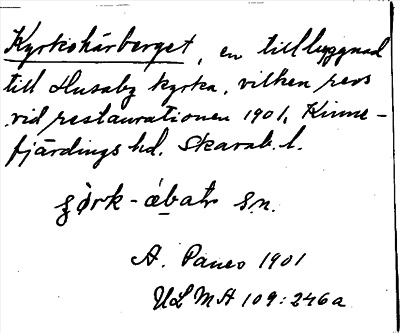 Kyrkohärberget, en tillbyggnad
till Husaby kyrka, vilken revs
vid restaurationen 1901, Kinne-
fjärdings hd. Skarab. l.
sn.
A. 1901
ULMA 109:246a